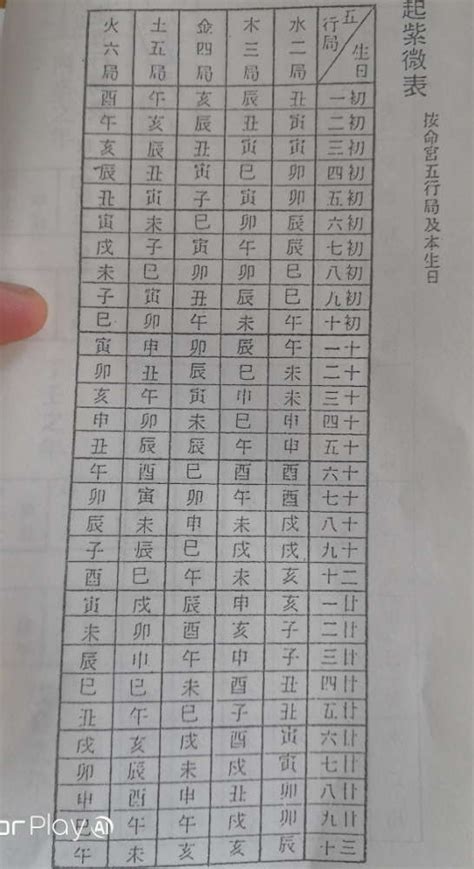 起紫微表
按命宮五行局及本生日
五行局 生日 水二局 木三局 金四局 土五局 火六局
初一 丑 辰 亥 午 酉
初二 寅 丑 辰 亥 午
初三 寅 寅 丑 辰 亥
初四 卯 巳 寅 丑 辰
初五 卯 寅 子 寅 丑
初六 辰 卯 巳 未 寅
初七 辰 午 寅 子 戌
初八 巳 卯 卯 巳 未
初九 巳 辰 丑 寅 子
初十 午 未 午 卯 巳
十一 午 辰 卯 申 寅
十二 未 巳 辰 丑 卯
十三 未 申 寅 午 亥
十四 申 巳 未 卯 申
十五 申 午 辰 辰 丑
十六 酉 酉 巳 酉 午
十七 酉 午 卯 寅 卯
十八 戌 未 申 未 辰
十九 戌 戌 巳 辰 子
二十 亥 未 午 巳 酉
廿一 亥 申 辰 戌 寅
廿二 子 亥 酉 卯 未
廿三 子 申 午 申 辰
廿四 丑 酉 未 巳 巳
廿五 丑 子 巳 午 丑
廿六 寅 酉 戌 亥 戌
廿七 寅 戌 未 辰 卯
廿八 卯 丑 申 酉 申
廿九 卯 戌 午 午
三十 辰 亥 亥 未 午
or Play AI